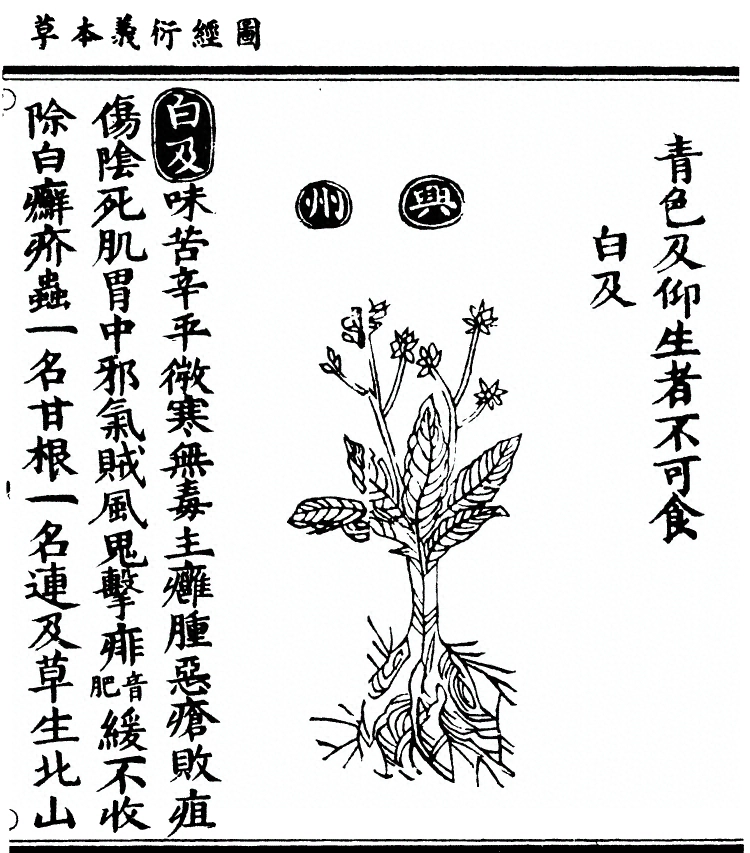 圖經衍義本草
青色及仰生者不可食
白及
興州
白及味苦辛平微寒無毒主癰腫惡瘡敗疽
傷陰死肌胃中邪氣賊風鬼擊痱音肥緩不收
除白癬疥蟲一名甘根一名連及草生北山